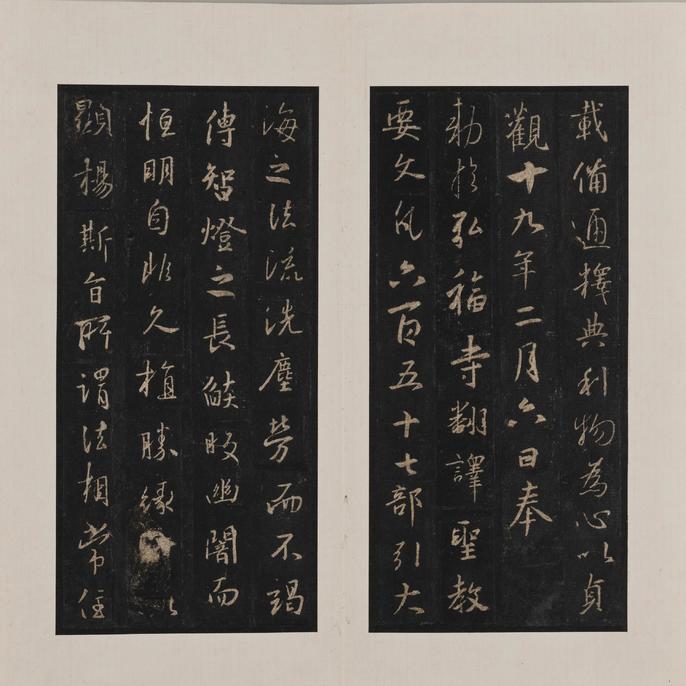 載備通釋典利物為心以貞
觀十九年二月六日奉
勅於弘福寺翻譯聖教
要文凡六百五十七部引大
海之法流洗塵勞而不竭
傳智燈之長焰皎幽闇而
恒明自非久植勝緣何以
顯揚斯旨所謂法相常住